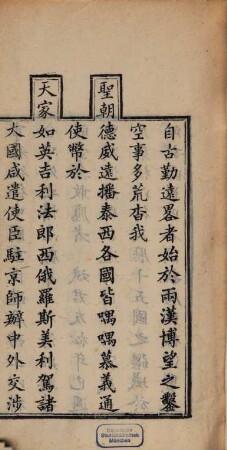 自古勤遠畧者始於兩漢博望之鑿
空事多荒杳我
聖朝德威遠播泰西各國皆喁喁慕義通
使幣於
天家如英吉利法郎西俄羅斯美利駕諸
大國咸遣使臣駐京師辦中外交涉
Bayerische
Staatsbibliothek
München